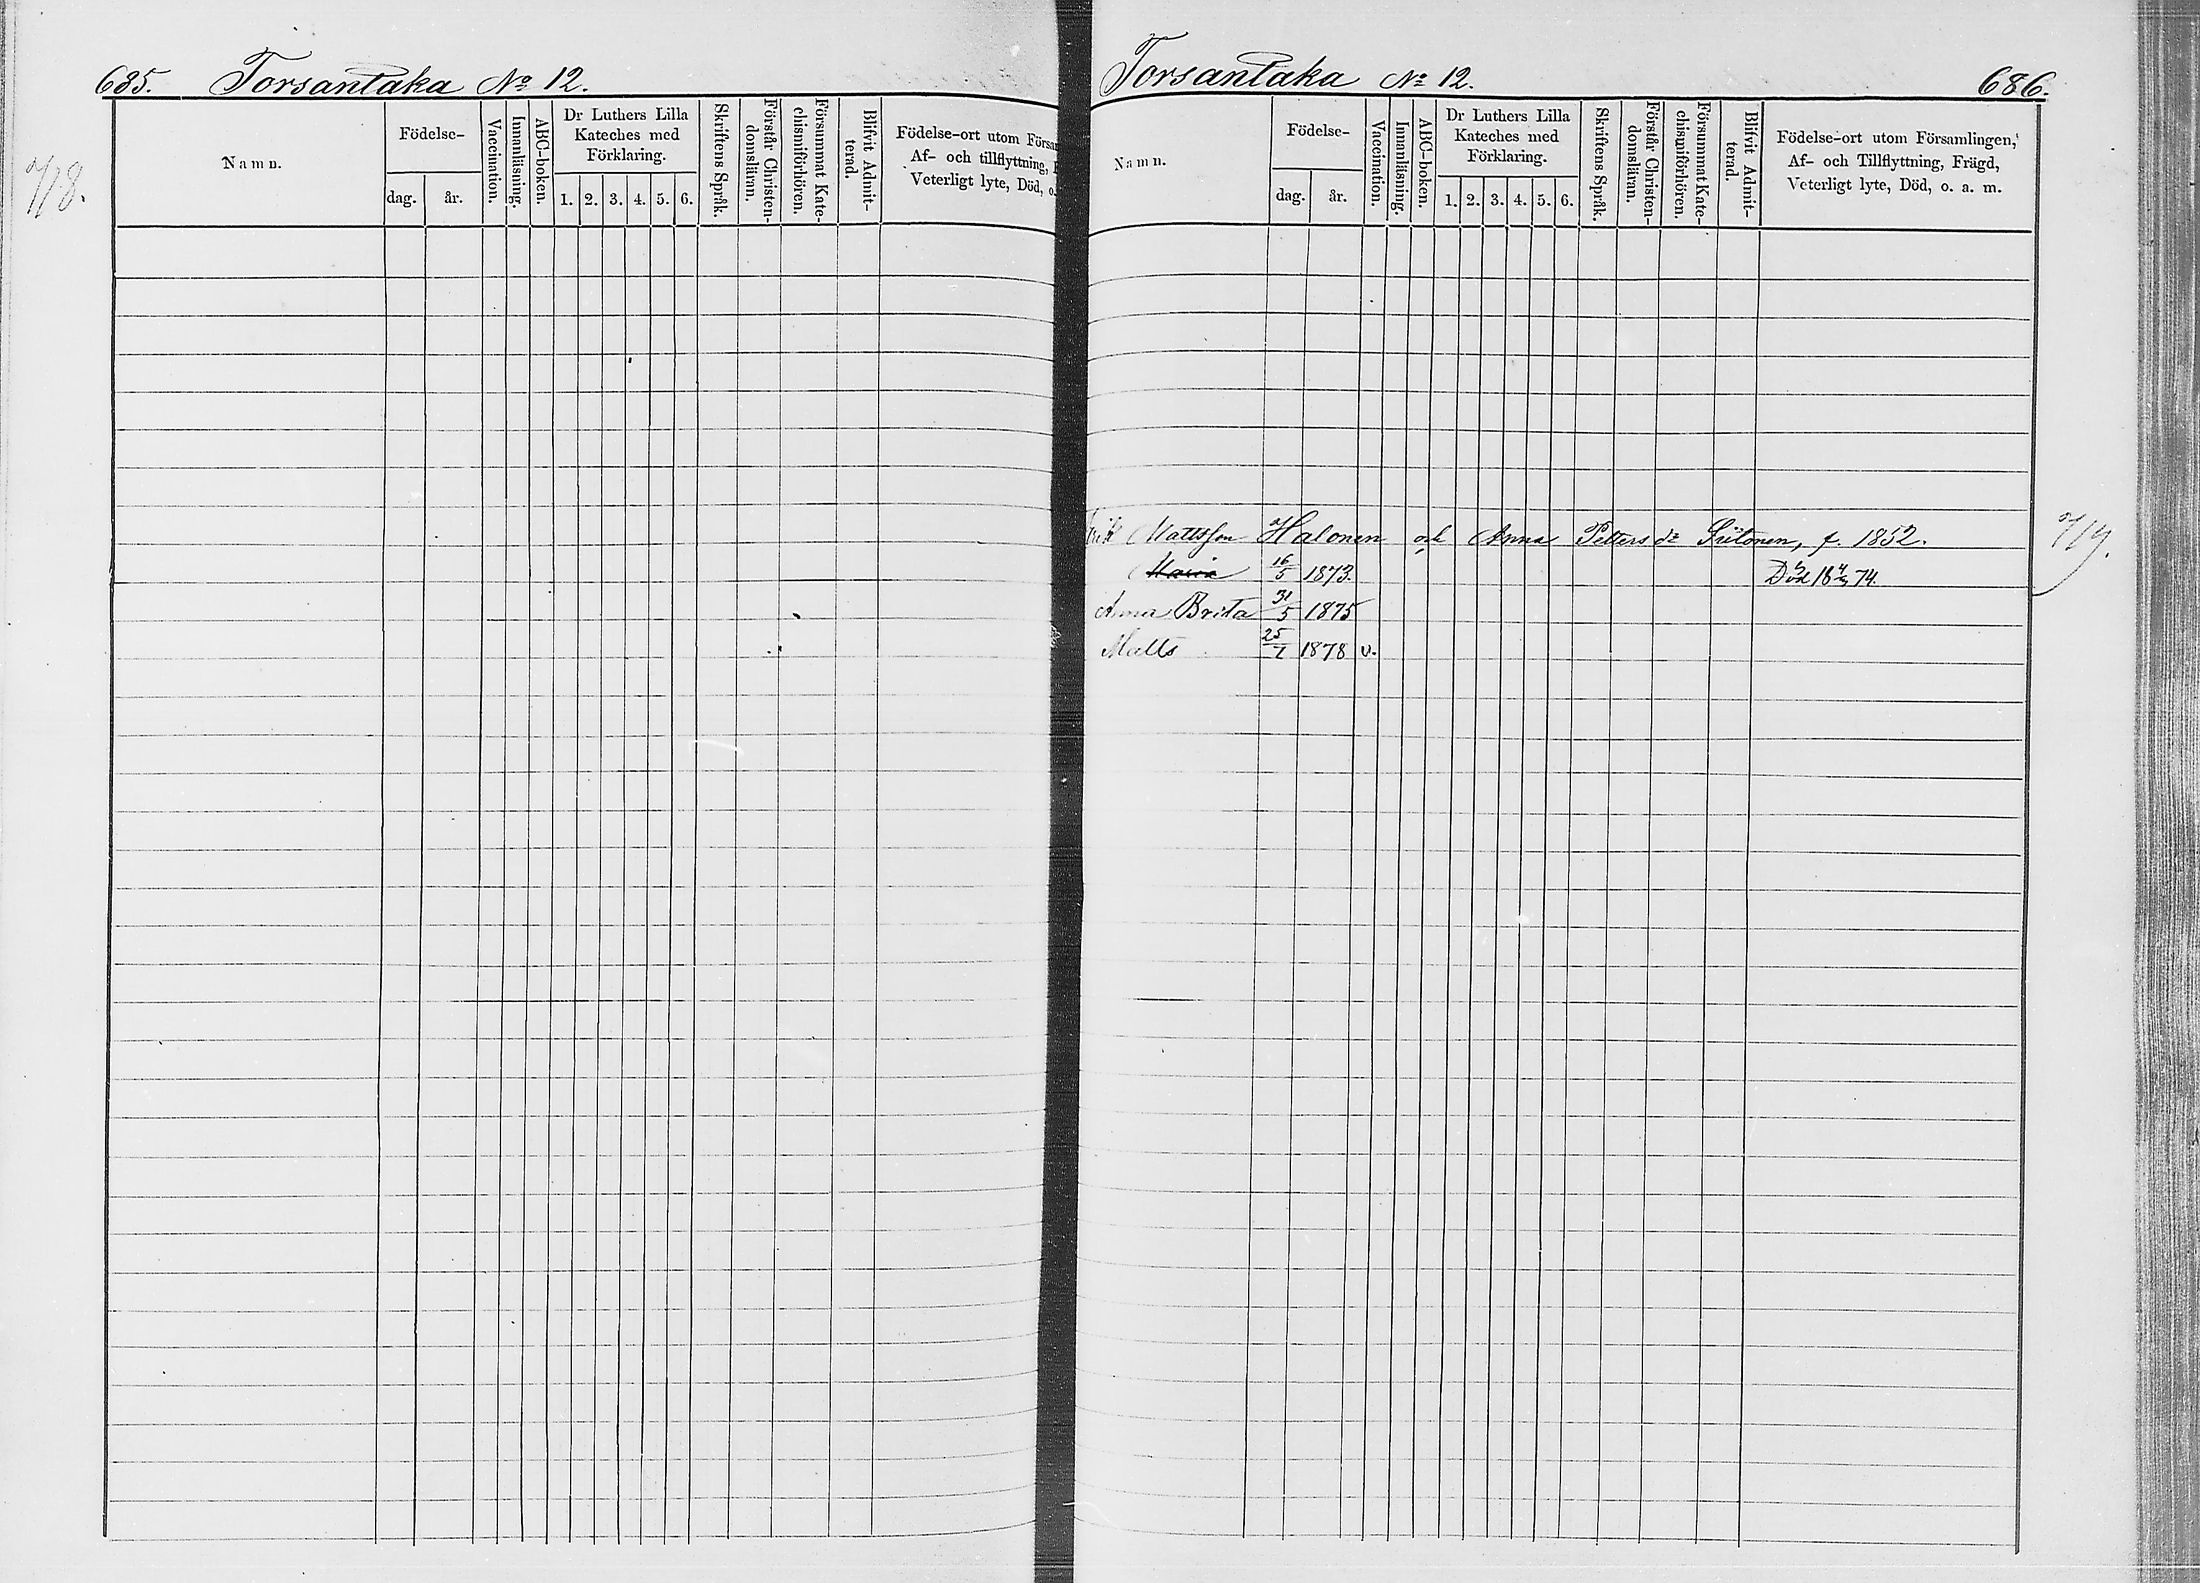 685. Torsantaka No 12.
718.
Namn.
Födelse-
dag. år.
Vaccination.
Innanläsning.
ABC-boken.
Dr Luthers Lilla
Kateches med
Förklaring.
1. 2. 3. 4. 5. 6.
Skriftens Språk.
Förstår Christen-
domsläran.
Försummat Kate-
chismiförhören.
Blifvit Admit-
terad.
Födelse-ort utom Försam
Af- och tillflyttning,
Veterligt lyte, Död, o.
Torsantaka No 12. 686.
Namn.
Födelse-
dag. år.
Vaccination.
Innanläsning.
ABC-boken.
Dr Luthers Lilla
Kateches med
Förklaring.
1. 2. 3. 4. 5. 6.
Skriftens Språk.
Förstår Christen-
domsläran.
Försummat Kate-
chismiförhören.
Blifvit Admit-
terad.
Födelse-ort utom Församlingen,
Af- och Tillflyttning, Frägd,
Veterligt lyte, Död, o. a. m.
Erik Mattsson Halonen och Anna Petters dr Siitonen, f. 1852.
719.
Maria 16/5 1873. Död 18 4/3 74.
Anna Brita 31/5 1875
Matts 25/1 1878 v.